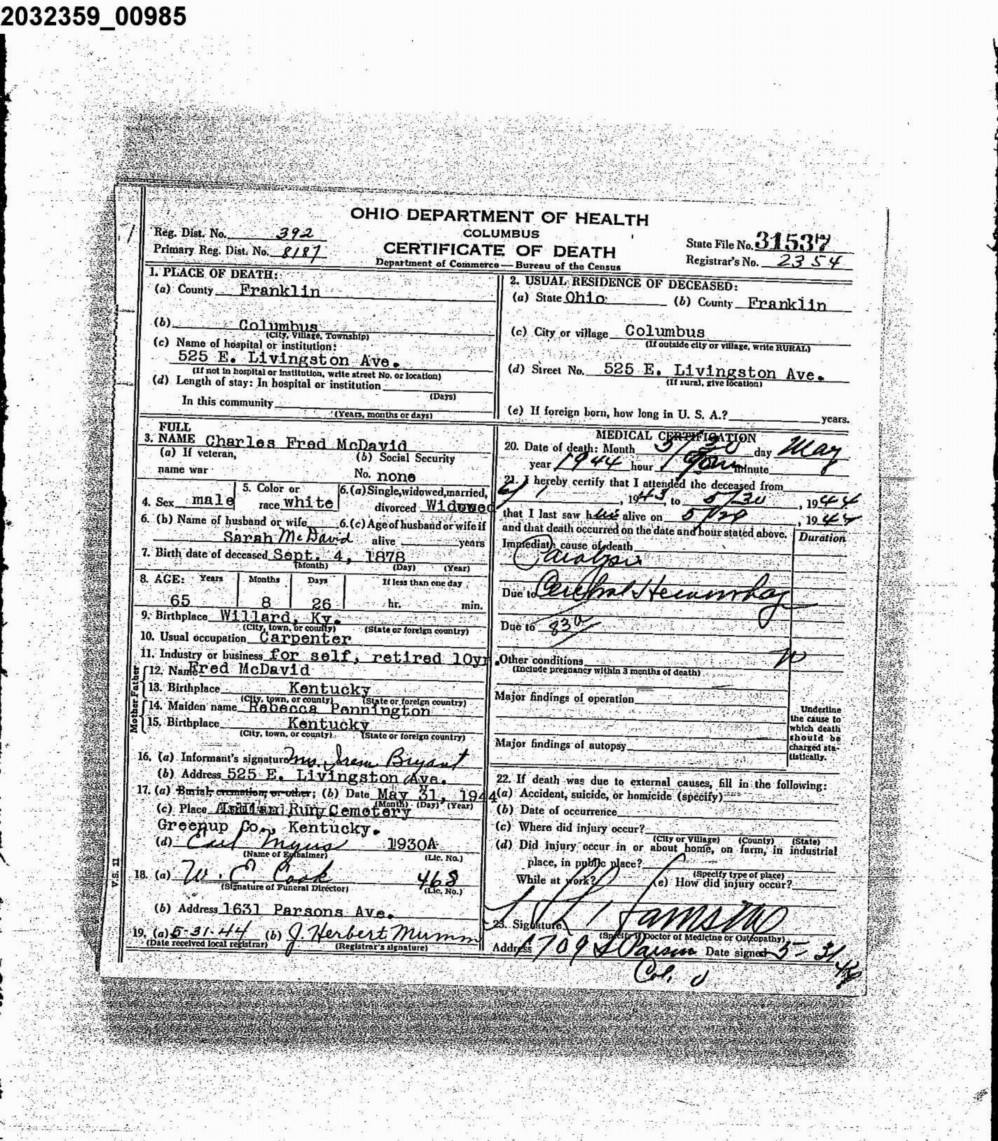 2032359_00985
OHIO DEPARTMENT OF HEALTH
COLUMBUS
CERTIFICATE OF DEATH
Department of Commerce — Bureau of the Census
Reg. Dist. No. 392
Primary Reg. Dist. No. 8187
State File No. 31537
Registrar's No. 2354
1. PLACE OF DEATH:
(a) County Franklin
(b) Columbus
(City, Village, Township)
(c) Name of hospital or institution:
525 E. Livingston Ave.
(If not in hospital or institution, write street No. or location)
(d) Length of stay: In hospital or institution
(Days)
In this community
(Years, months or days)
2. USUAL RESIDENCE OF DECEASED:
(a) State Ohio (b) County Franklin
(c) City or village Columbus
(If outside city or village, write RURAL)
(d) Street No. 525 E. Livingston Ave.
(If rural, give location)
(e) If foreign born, how long in U. S. A.? years.
FULL
3. NAME Charles Fred McDavid
(a) If veteran, (b) Social Security
name war No. none
4. Sex male 5. Color or race white 6. (a) Single, widowed, married, divorced Widowed
6. (b) Name of husband or wife 6. (c) Age of husband or wife if
Sarah McDavid alive years
7. Birth date of deceased Sept. 4, 1878
(Month) (Day) (Year)
8. AGE: Years Months Days If less than one day
65 8 26 hr. min.
9. Birthplace Willard, Ky.
(City, town, or county) (State or foreign country)
10. Usual occupation Carpenter
11. Industry or business for self, retired 10yr.
Mother Father
12. Name Fred McDavid
13. Birthplace Kentucky
(City, town, or county) (State or foreign country)
14. Maiden name Rebecca Pennington
15. Birthplace Kentucky
(City, town, or county) (State or foreign country)
16. (a) Informant's signature Mrs. Irem Bryant
(b) Address 525 E. Livingston Ave.
17. (a) Burial, cremation, or other; (b) Date May 31, 1944
(Month) (Day) (Year)
(c) Place Indian Run Cemetery
Greenup Co., Kentucky.
(d) Earl Myers 1930A
(Name of Embalmer) (Lic. No.)
18. (a) W. E. Cook 468
(Signature of Funeral Director) (Lic. No.)
(b) Address 1631 Parsons Ave.
19. (a) 5-31-44 (b) J. Herbert Mumm
(Date received local registrar) (Registrar's signature)
V.S. 11
MEDICAL CERTIFICATION
20. Date of death: Month 5/30 day May
year 1944 hour minute
21. I hereby certify that I attended the deceased from
, 1943 to 5/30, 1944
that I last saw him alive on 5/29, 1944
and that death occurred on the date and hour stated above.
Duration
Immediate cause of death
Paralysis
Due to Cerebral Hemorrhag
Due to 83a
Other conditions
(Include pregnancy within 3 months of death)
Major findings of operation
Major findings of autopsy
Underline the cause to which death should be charged statistically.
22. If death was due to external causes, fill in the following:
(a) Accident, suicide, or homicide (specify)
(b) Date of occurrence
(c) Where did injury occur?
(City or Village) (County) (State)
(d) Did injury occur in or about home, on farm, in industrial
place, in public place?
(Specify type of place)
While at work? (e) How did injury occur?
23. Signature
(Specify if Doctor of Medicine or Osteopathy)
Address 1709 S Parsons Date signed 5-31 44
Col. O